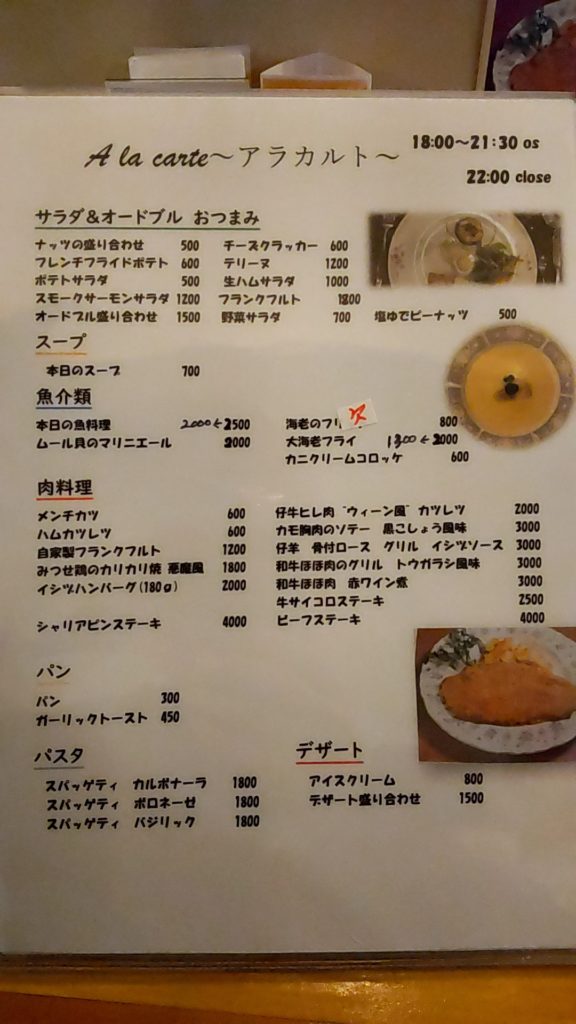 A la carte～アラカルト～
18:00～21:30 os
22:00 close
サラダ&オードブル おつまみ
ナッツの盛り合わせ 500 チーズクラッカー 600
フレンチフライドポテト 600 テリーヌ 1200
ポテトサラダ 500 生ハムサラダ 1000
スモークサーモンサラダ 1200 フランクフルト
オードブル盛り合わせ 1500 野菜サラダ 700 塩ゆでピーナッツ 500
スープ
本日のスープ 700
魚介類
本日の魚料理 2000← 2500
ムール貝のマリニエール 2000
海老のフリ 800
大海老フライ ← 2000
カニクリームコロッケ 600
肉料理
メンチカツ 600
ハムカツレツ 600
自家製フランクフルト 1200
みつせ鶏のカリカリ焼 悪魔風 1800
イシヅハンバーグ(180g) 2000
シャリアピンステーキ 4000
仔牛ヒレ肉 "ウィーン風" カツレツ 2000
カモ胸肉のソテー 黒こしょう風味 3000
仔羊 骨付ロース グリル イシヅソース 3000
和牛ほほ肉のグリル トウガラシ風味 3000
和牛ほほ肉 赤ワイン煮 3000
牛サイコロステーキ 2500
ビーフステーキ 4000
パン
パン 300
ガーリックトースト 450
パスタ
スパッゲティ カルボナーラ 1800
スパッゲティ ボロネーゼ 1800
スパッゲティ バジリック 1800
デザート
アイスクリーム 800
デザート盛り合わせ 1500